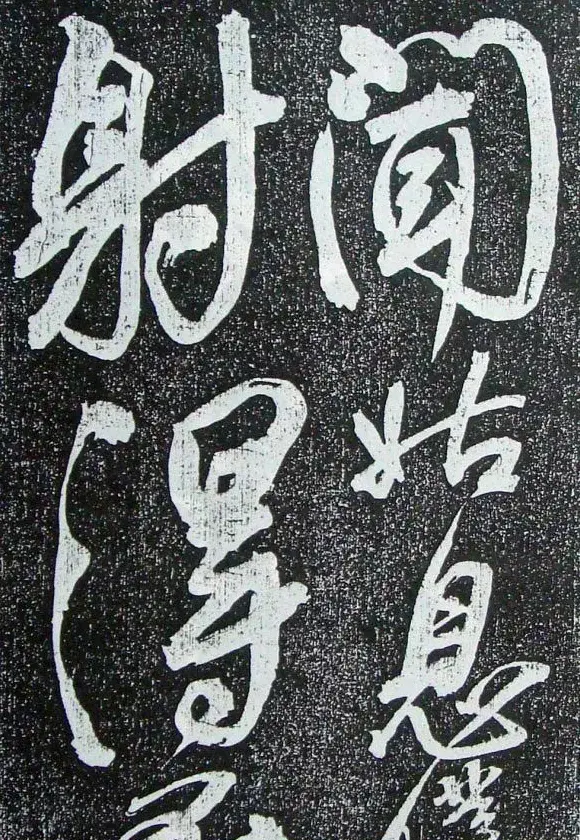 聞姑息
射得